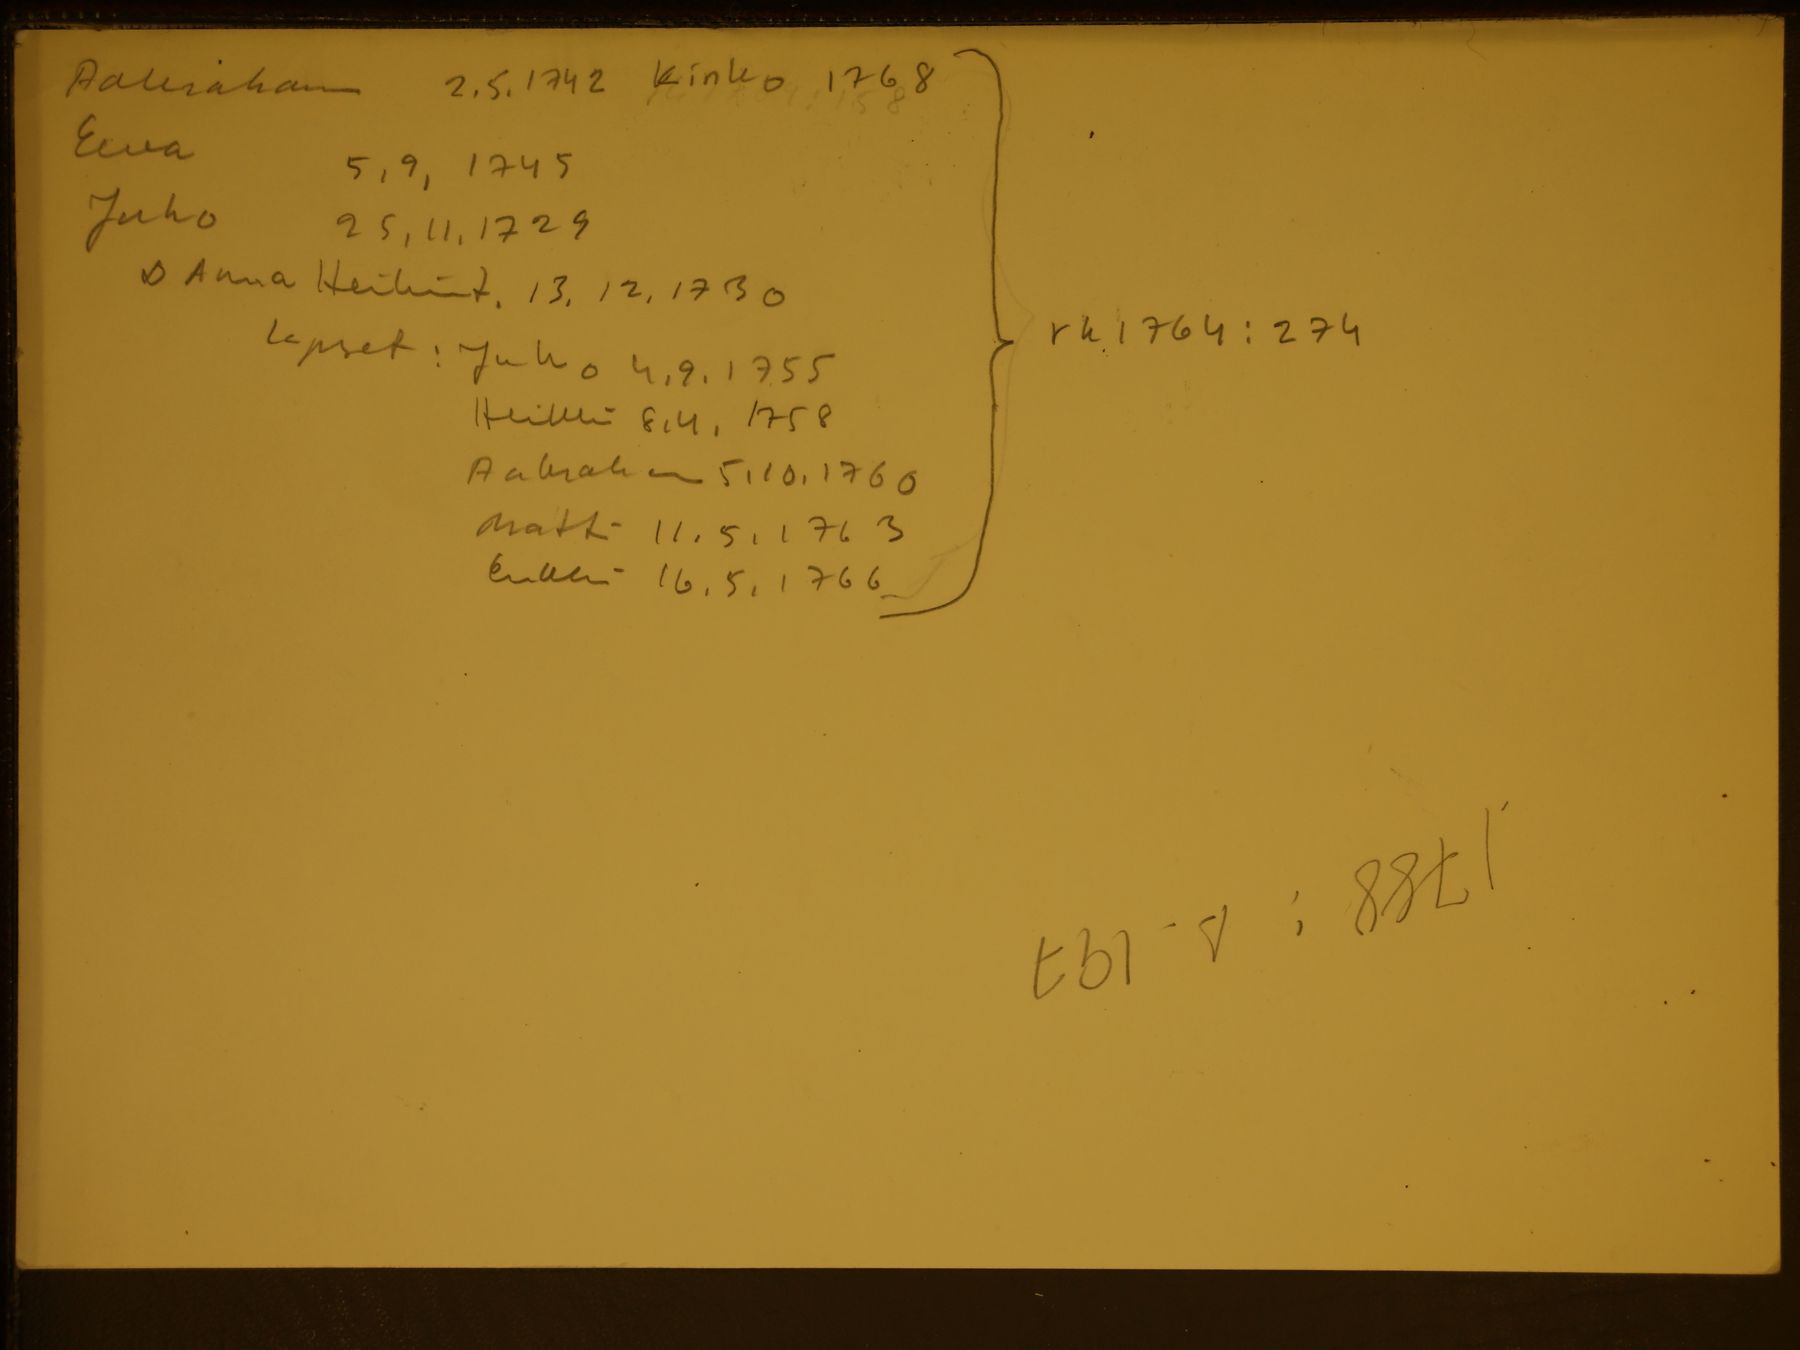 Aabraham 2.5.1742 Kinko 1768
Eeva 5,9, 1745
Juho 25,11,1729
Anna Heikint. 13, 12, 1730
Lapset: Juho 4,9.1755
Heikki 8,4, 1758
Aabraham 5,10,1760
Matti 11.5,1763
Erkki 16,5,1766
rk 1764:274
1788 : p-197